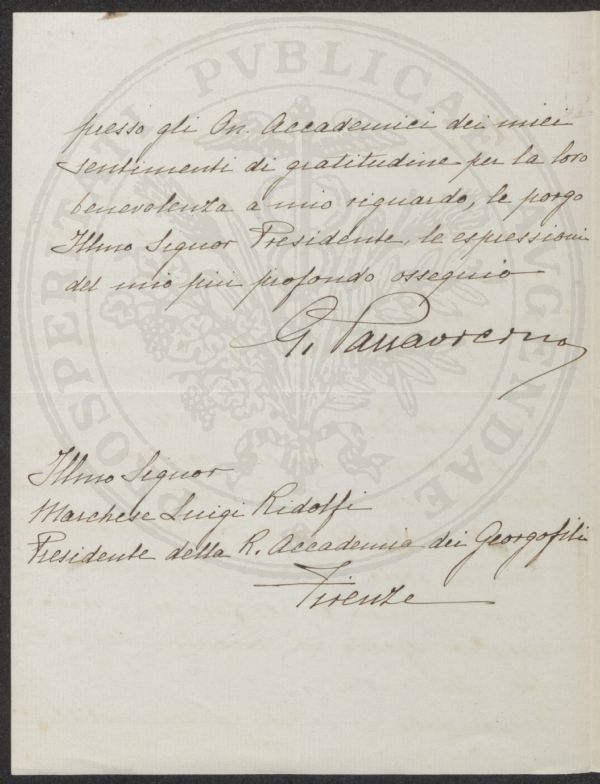 presso gli On. Accademici dei miei
sentimenti di gratitudine per la loro
benevolenza a mio riguardo, le porgo
Illmo Signor Presidente, le espressioni
del mio più profondo ossequio
G.
Illmo Signor
Marchese Luigi Ridolfi
Presidente della R. Accademia dei Georgofili
Firenze
PROSPERITATI PVBLICAE AVGENDAE